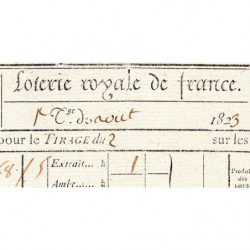 Loterie royale de france.
1er T. de aout 1823
pour le TIRAGE du 2 sur les
Extrait... à 1
Ambe... à